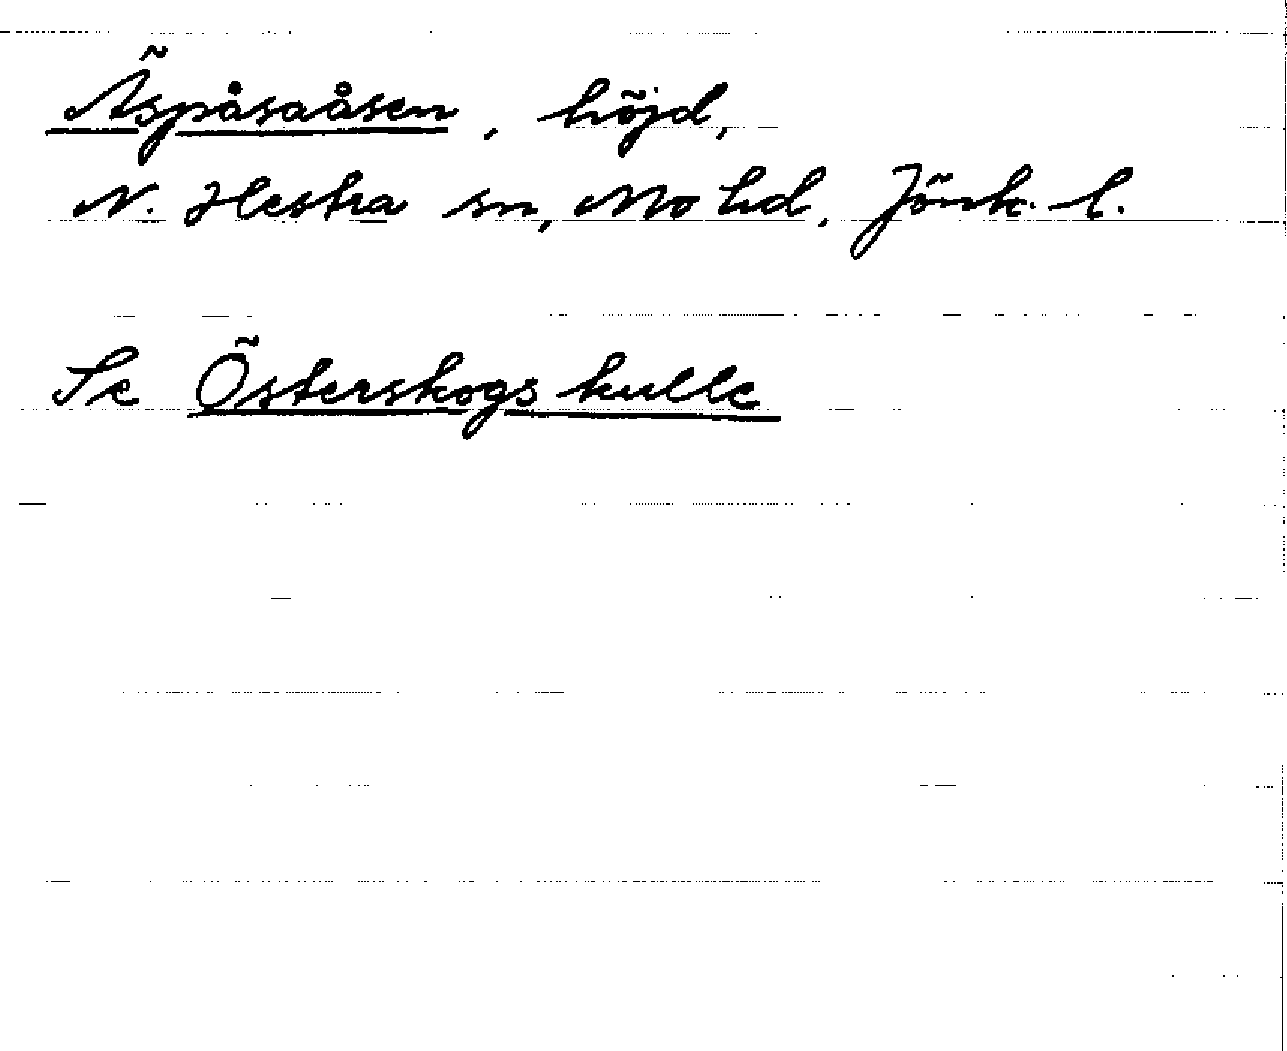 Äspåsaåsen, höjd,
N. Hestra sn, Mo hd, Jönk. l.
Se Österskogs kulle